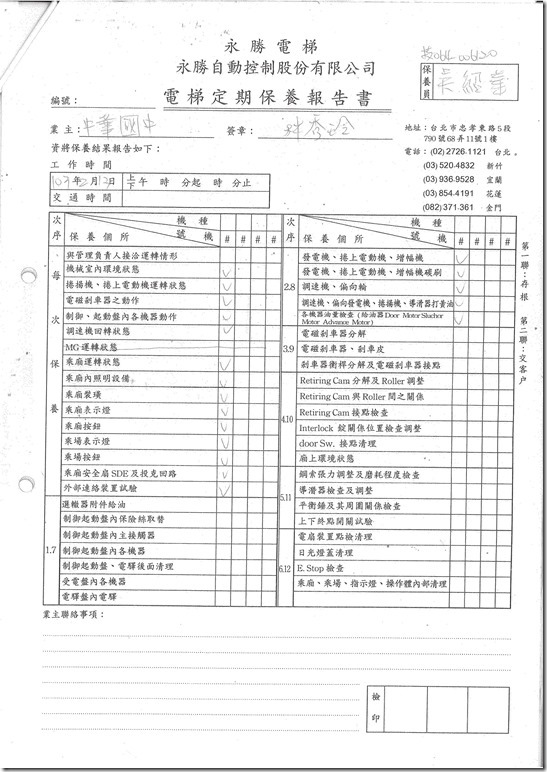 永勝電梯
永勝自動控制股份有限公司
電梯定期保養報告書
保養員
編號：
業主： 中華國中 簽章：
資將保養結果報告如下：
工作時間
103年2月12日 上下午 時 分起 時 分止
交通時間
地址：台北市忠孝東路5段
790號68弄11號1樓
電話：(02)2726-1121 台北
(03)520-4832 新竹
(03)936-9528 宜蘭
(03)854-4191 花蓮
(082)371.361 金門
次序 機種 號機 保養個所 # # # #
每次保養
與管理負責人接洽運轉情形
機械室內環境狀態 ✓
捲揚機、捲上電動機運轉狀態 ✓
電磁剎車器之動作 ✓
制御、起動盤內各機器動作 ✓
調速機回轉狀態 ✓
MG運轉狀態
乘廂運轉狀態 ✓
乘廂內照明設備 ✓
乘廂裝璜 ✓
乘廂表示燈 ✓
乘廂按鈕 ✓
乘場表示燈 ✓
乘場按鈕 ✓
乘廂安全扇SDE及投克回路 ✓
外部連絡裝置試驗 ✓
1.7
選轍器附件給油
制御起動盤內保險絲取替
制御起動盤內主接觸器
制御起動盤內各機器
制御起動盤、電驛後面清理
受電盤內各機器
電驛盤內電驛
次序 機種 號機 保養個所 # # # #
2.8
發電機、捲上電動機、增幅機 ✓
發電機、捲上電動機、增幅機碳刷 ✓
調速機、偏向輪 ✓
調速機、偏向發電機、捲揚機、導滑器打黃油 ✓
各機器油量檢查 (給油器 Door Motor Sluchor
Motor Advance Motor) ✓
3.9
電磁剎車器分解
電磁剎車器、剎車皮
剎車器衡桿分解及電磁剎車器接點
4.10
Retiring Cam 分解及 Roller 調整
Retiring Cam 與 Roller 間之關係
Retiring Cam 接點檢查
Interlock 錠關係位置檢查調整
door Sw. 接點清理
廂上環境狀態
5.11
鋼索張力調整及磨耗程度檢查
導滑器檢查及調整
平衡錘及其周圍關係檢查
上下終點開關試驗
電扇裝置點檢清理
6.12
日光燈蓋清理
E. Stop 檢查
乘廂、乘場、指示燈、操作體內部清理
第一聯：存根 第二聯：交客户
業主聯絡事項：
檢印